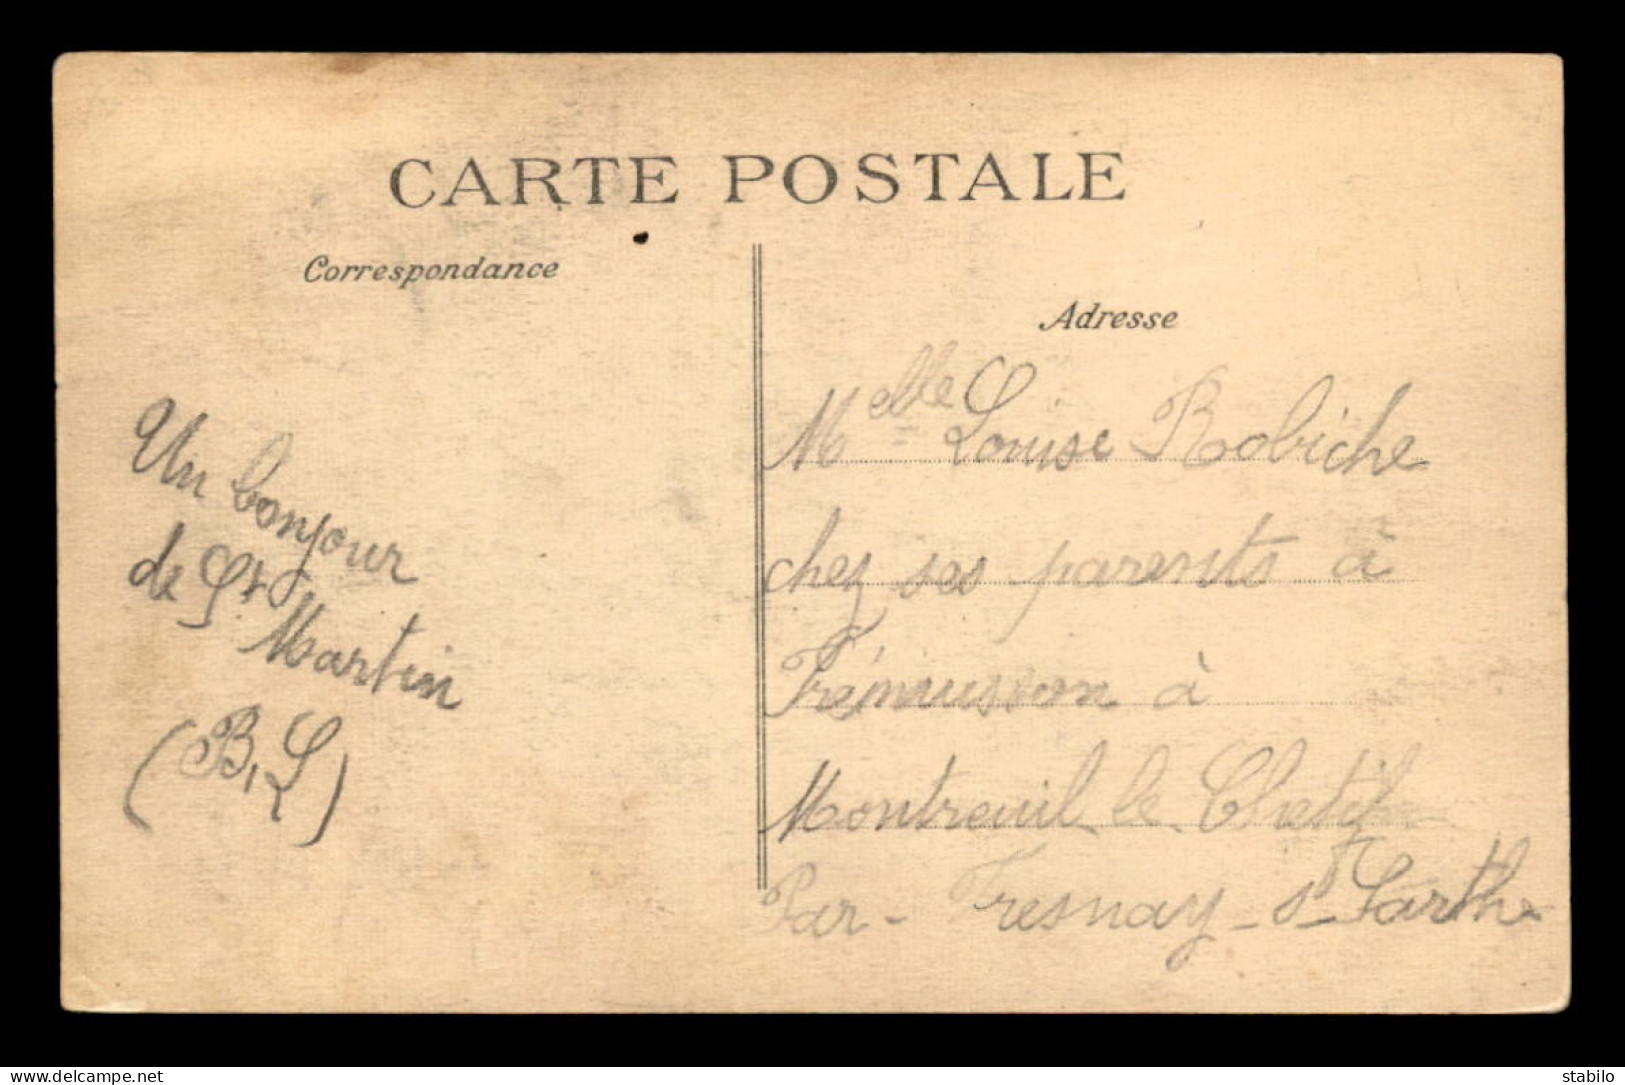 CARTE POSTALE
Correspondance
Adresse
Un bonjour
de St Martin
(B, L)
Melle Louise Robiche
chez ses parents à
Trémusson à
Montreuil le Chetif
Par - Fresnay - S - Sarthe
www.delcampe.net
stabilo